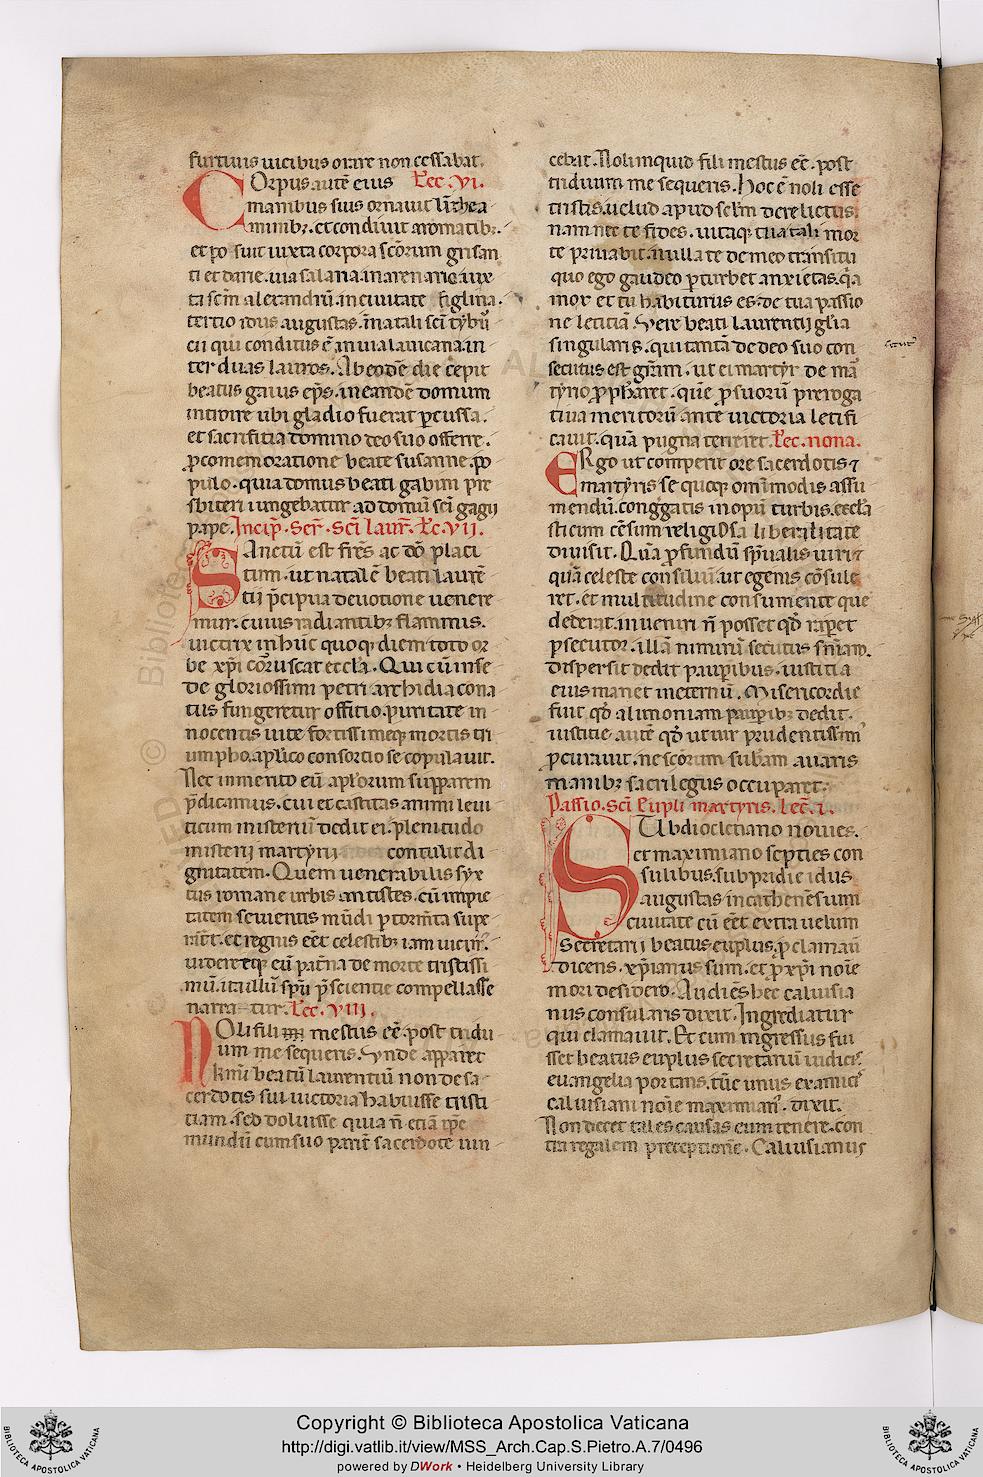 furtiuis uicibus orare non cessabat.
Corpus autē eius Lec. VI.
manibus suis ornauit lītthea
minibꝫ. et condiuit aromatibꝫ.
et po suit iuxta corpora scōrum grisan
ti et darie. uia salaria. in arenario iux
ta scm̄ alexandrū. in ciuitate figlina.
tertio idus augustas. in natali sci tyburⁱ
cii qui conditus ē in uia lauicana. in
ter duas lauros. Ab eodē die cepit
beatus gaius ep̄s. in eandē domum
introire ubi gladio fuerat ꝑcussa.
et sacrifitia domino deo suo offerre.
ꝓ comemoratione beate susanne. po
pulo. quia domus beati gabini pre
sbiteri iungebatur ad domū sci gagii
pape. Incip̄. Ser̄. Sci laur̄. Lc. VII.
Sanctū est fr̄es ac dō placi
tum. ut natalē beati laurē
tii p̄cipua deuotione uenere
mur. cuius radiantibꝫ flammis.
uictrix in hūc quoqꝫ diem toto or
be xp̄i coruscat eccl̄a. Qui cū in se
de gloriossimi petri archidiacona
tus fungeretur offitio. puritate in
nocentis uite fortissimeqꝫ mortis tri
umpho. apl̄ico consortio se copulauit.
Nec inmerito eū apl̄orum supparem
p̄dicamus. cui et castitas animi leui
ticum misteriū dedit et plenitudo
misterii martyrii contulit di
gnitatem. Quem uenerabilis syx
tus romane urbis antistes. cū impie
tatem seuientis mūdi ꝑ torm̄ta supe
rar̄t. et regnis eēt celestibꝫ iam uicinꝰ.
uideretqꝫ eū pat̄na de morte tristissi
mū. ita illū sp̄u p̄scientie compellasse
narra tur. Lec. VIII.
Noli fili mestus eē. post tridu
um me sequeris. Vnde apparet
kmi beatū laurentiū non de sa
cerdotis sui uictoria habuisse tristi
tiam. sed doluisse quia n̄ etiā ip̄e
mundū cum suo parit̄ sacerdote uin
cebat. Noli inquid fili mestus eē. post
triduum me sequeris. Hoc ē noli esse
tristis. uelud apud selm derelictus.
nam nec te fides. uitaqꝫ tua tali mor
te priuabit. nulla te de meo transitu
quo ego gaudeo ꝑturbet anxietas. qⁱa
mox et tu habiturus es. de tua passio
ne letitiā. Vere beati laurentij gl̄ia
singularis. qui tantā de deo suo con
secutus est gr̄am. ut ei martyr de mar
tyrio ꝓpħaret. quē ꝓ suorū preroga
tiua meritorū ante uictoria letifi
cauit. quā pugna tereret. Lec. nona.
Ergo ut comperit ore sacerdotis ⁊
martyris se quoqꝫ om̄imodis assu
mendū. cong̓gatis inopū turbis. eccl̄a
sticum cēsum religiosa liberalitate
diuisit. Quā ꝓfundū sp̄ualis uiri ⁊
quā celeste consiliū. ut egenis cōsule
ret. et multitudine consumente que
dederat. inueniri n̄ posset qd̄ rap̄et
ꝑsecutor. illā nimirū secutus sn̄iam.
dispersit dedit pauꝑibus. iustitia
eius manet in eternū. Misericordie
fuit qd̄ alimoniam pauꝑibꝫ dedit.
iustitie autē qd̄ utitur prudentissimⁱ
ꝓcurauit. ne scōrum sub̄am auaris
manibꝫ sacrilegus occuparet.
Passio. Sci Eupli martyris. Lec. I.
Sub dioclenano nouies.
et maximiano septies con
sulibus. sub pridie idus
augustas in cathenēsium
ciuitate cū eēt extra uelum
Secretarii beatus euplus. ꝓclamauⁱ
dicens. xp̄ianus sum. et ꝓ xp̄i noīe
mori desidero. Audiēs hec caluisia
nus consularis dixit. Ingrediatur
qui clamauit. Et cum ingressus fui
sset beatus euplus secretariū iudicis.
euangelia portans. tūc unus ex amicⁱ
caluisiani noīe maximianⁱ. dixit.
Non decet tales causas eum tenere. con
tra regalem preceptionē. Caluisianus
Copyright © Biblioteca Apostolica Vaticana
http://digi.vatlib.it/view/MSS_Arch.Cap.S.Pietro.A.7/0496
powered by DWork • Heidelberg University Library
BIBLIOTECA APOSTOLICA VATICANA
BIBLIOTECA APOSTOLICA VATICANA